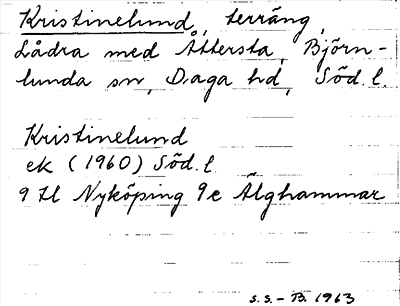 Kristinelund, terräng,
Lådra med Åttersta, Björn-
lunda sn, Daga hd, Söd. l.
Kristinelund
ek (1960) Söd. l
9 H Nyköping 9e Älghammar
S.S.-B. 1963